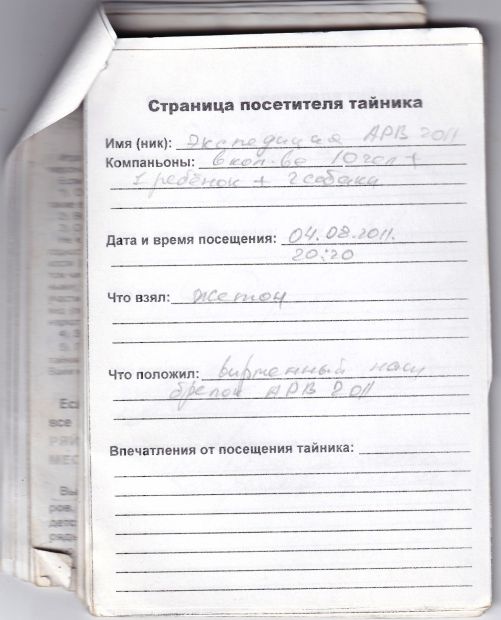 Страница посетителя тайника
Имя (ник): Экспедиция АРВ 2011
Компаньоны: в кол-ве 10 чел +
1 ребёнок + 2 собаки
Дата и время посещения: 04.08.2011.
20:20
Что взял: жетон
Что положил: фирменный наш
брелок АРВ 2011
Впечатления от посещения тайника:
Если
все
РЯЙ
МЕС
Вы
ров,
детс
рядь